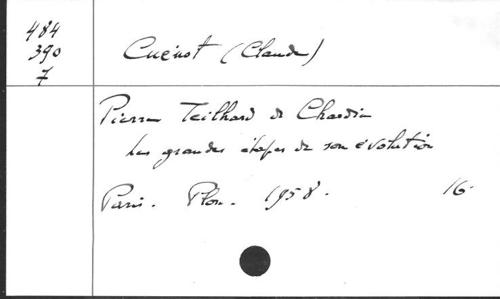 484
390
7
Cuénot (Claude)
Pierre Teilhard de Chardin
Les grandes étapes de son évolution
Paris. Plon. 1958. 16.